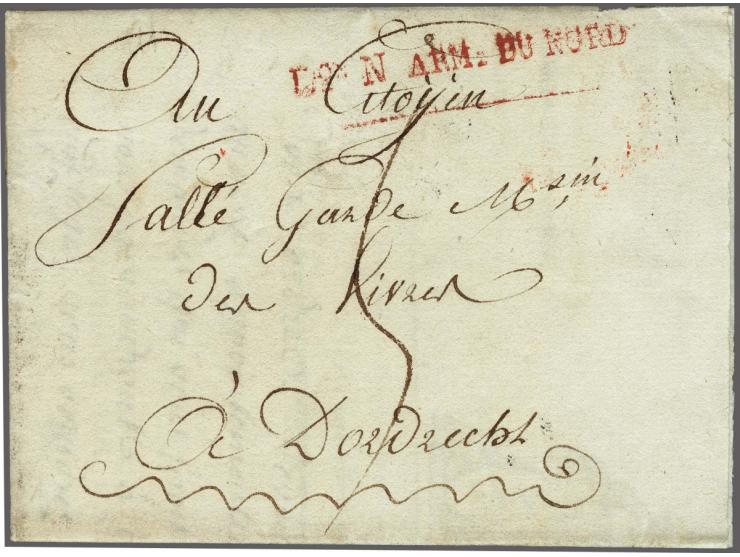 Don N ARM. DU NORD
Au Citoyen
Sallé Garde M.sin
des Vivres
à Dordrecht